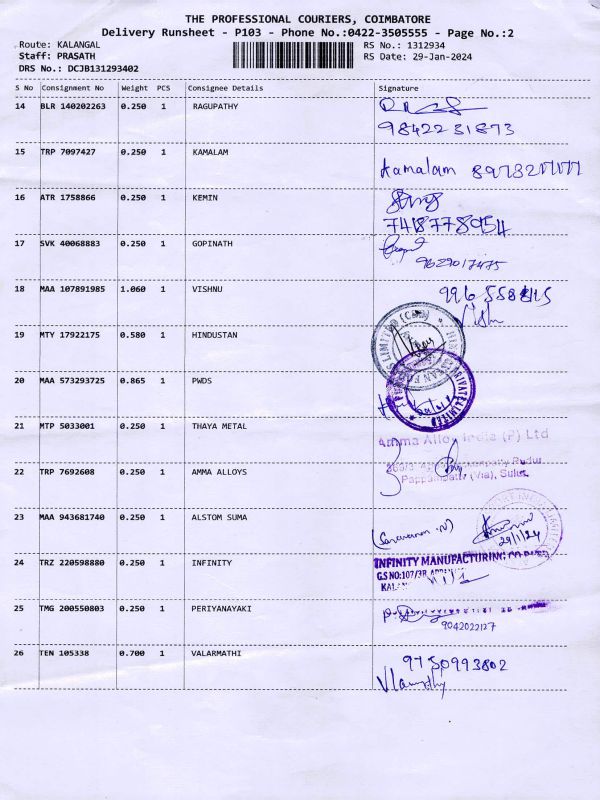 THE PROFESSIONAL COURIERS, COIMBATORE
Delivery Runsheet - P103 - Phone No.:0422-3505555 - Page No.:2
Route: KALANGAL
RS No.: 1312934
Staff: PRASATH
RS Date: 29-Jan-2024
DRS No.: DCJB131293402
S No Consignment No Weight PCS Consignee Details Signature
14 BLR 140202263 0.250 1 RAGUPATHY
9842231873
15 TRP 7097427 0.250 1 KAMALAM
Kamalam
16 ATR 1758866 0.250 1 KEMIN
7418778954
17 SVK 40068883 0.250 1 GOPINATH
9629017475
18 MAA 107891985 1.060 1 VISHNU
19 MTY 17922175 0.580 1 HINDUSTAN
20 MAA 573293725 0.865 1 PWDS
21 MTP 5033001 0.250 1 THAYA METAL
Amma Alloy India (P) Ltd
22 TRP 7692608 0.250 1 AMMA ALLOYS
Pappampatti (Via), Sulur
23 MAA 943681740 0.250 1 ALSTOM SUMA
(Saravanan .N)
29/1/24
24 TRZ 220598880 0.250 1 INFINITY
INFINITY MANUFACTURING
25 TMG 200550803 0.250 1 PERIYANAYAKI
9042022127
26 TEN 105338 0.700 1 VALARMATHI
9750993802